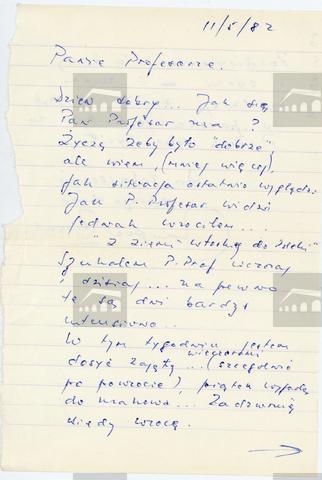 11/5/82
Panie Profesorze.
Dzień dobry... Jak się
Pan Profesor ma ?
Życzę żeby było "dobrze"
ale wiem, (mniej więcej)
jak sytuacja ostatnio wygląda
Jak P. Profesor widzi
jednak wróciłem...
"Z ziemi włoskiej do Polski"
Szukałem P. Prof wczoraj
i dzisiaj... na pewno
te są dni bardzo
intensywne..
W tym tygodniu jestem
dosyć zajęty wieczorami
... (szczególnie
po powrocie), piątek wyjadę
do Krakowa... Zadzwonię
kiedy wrócę.